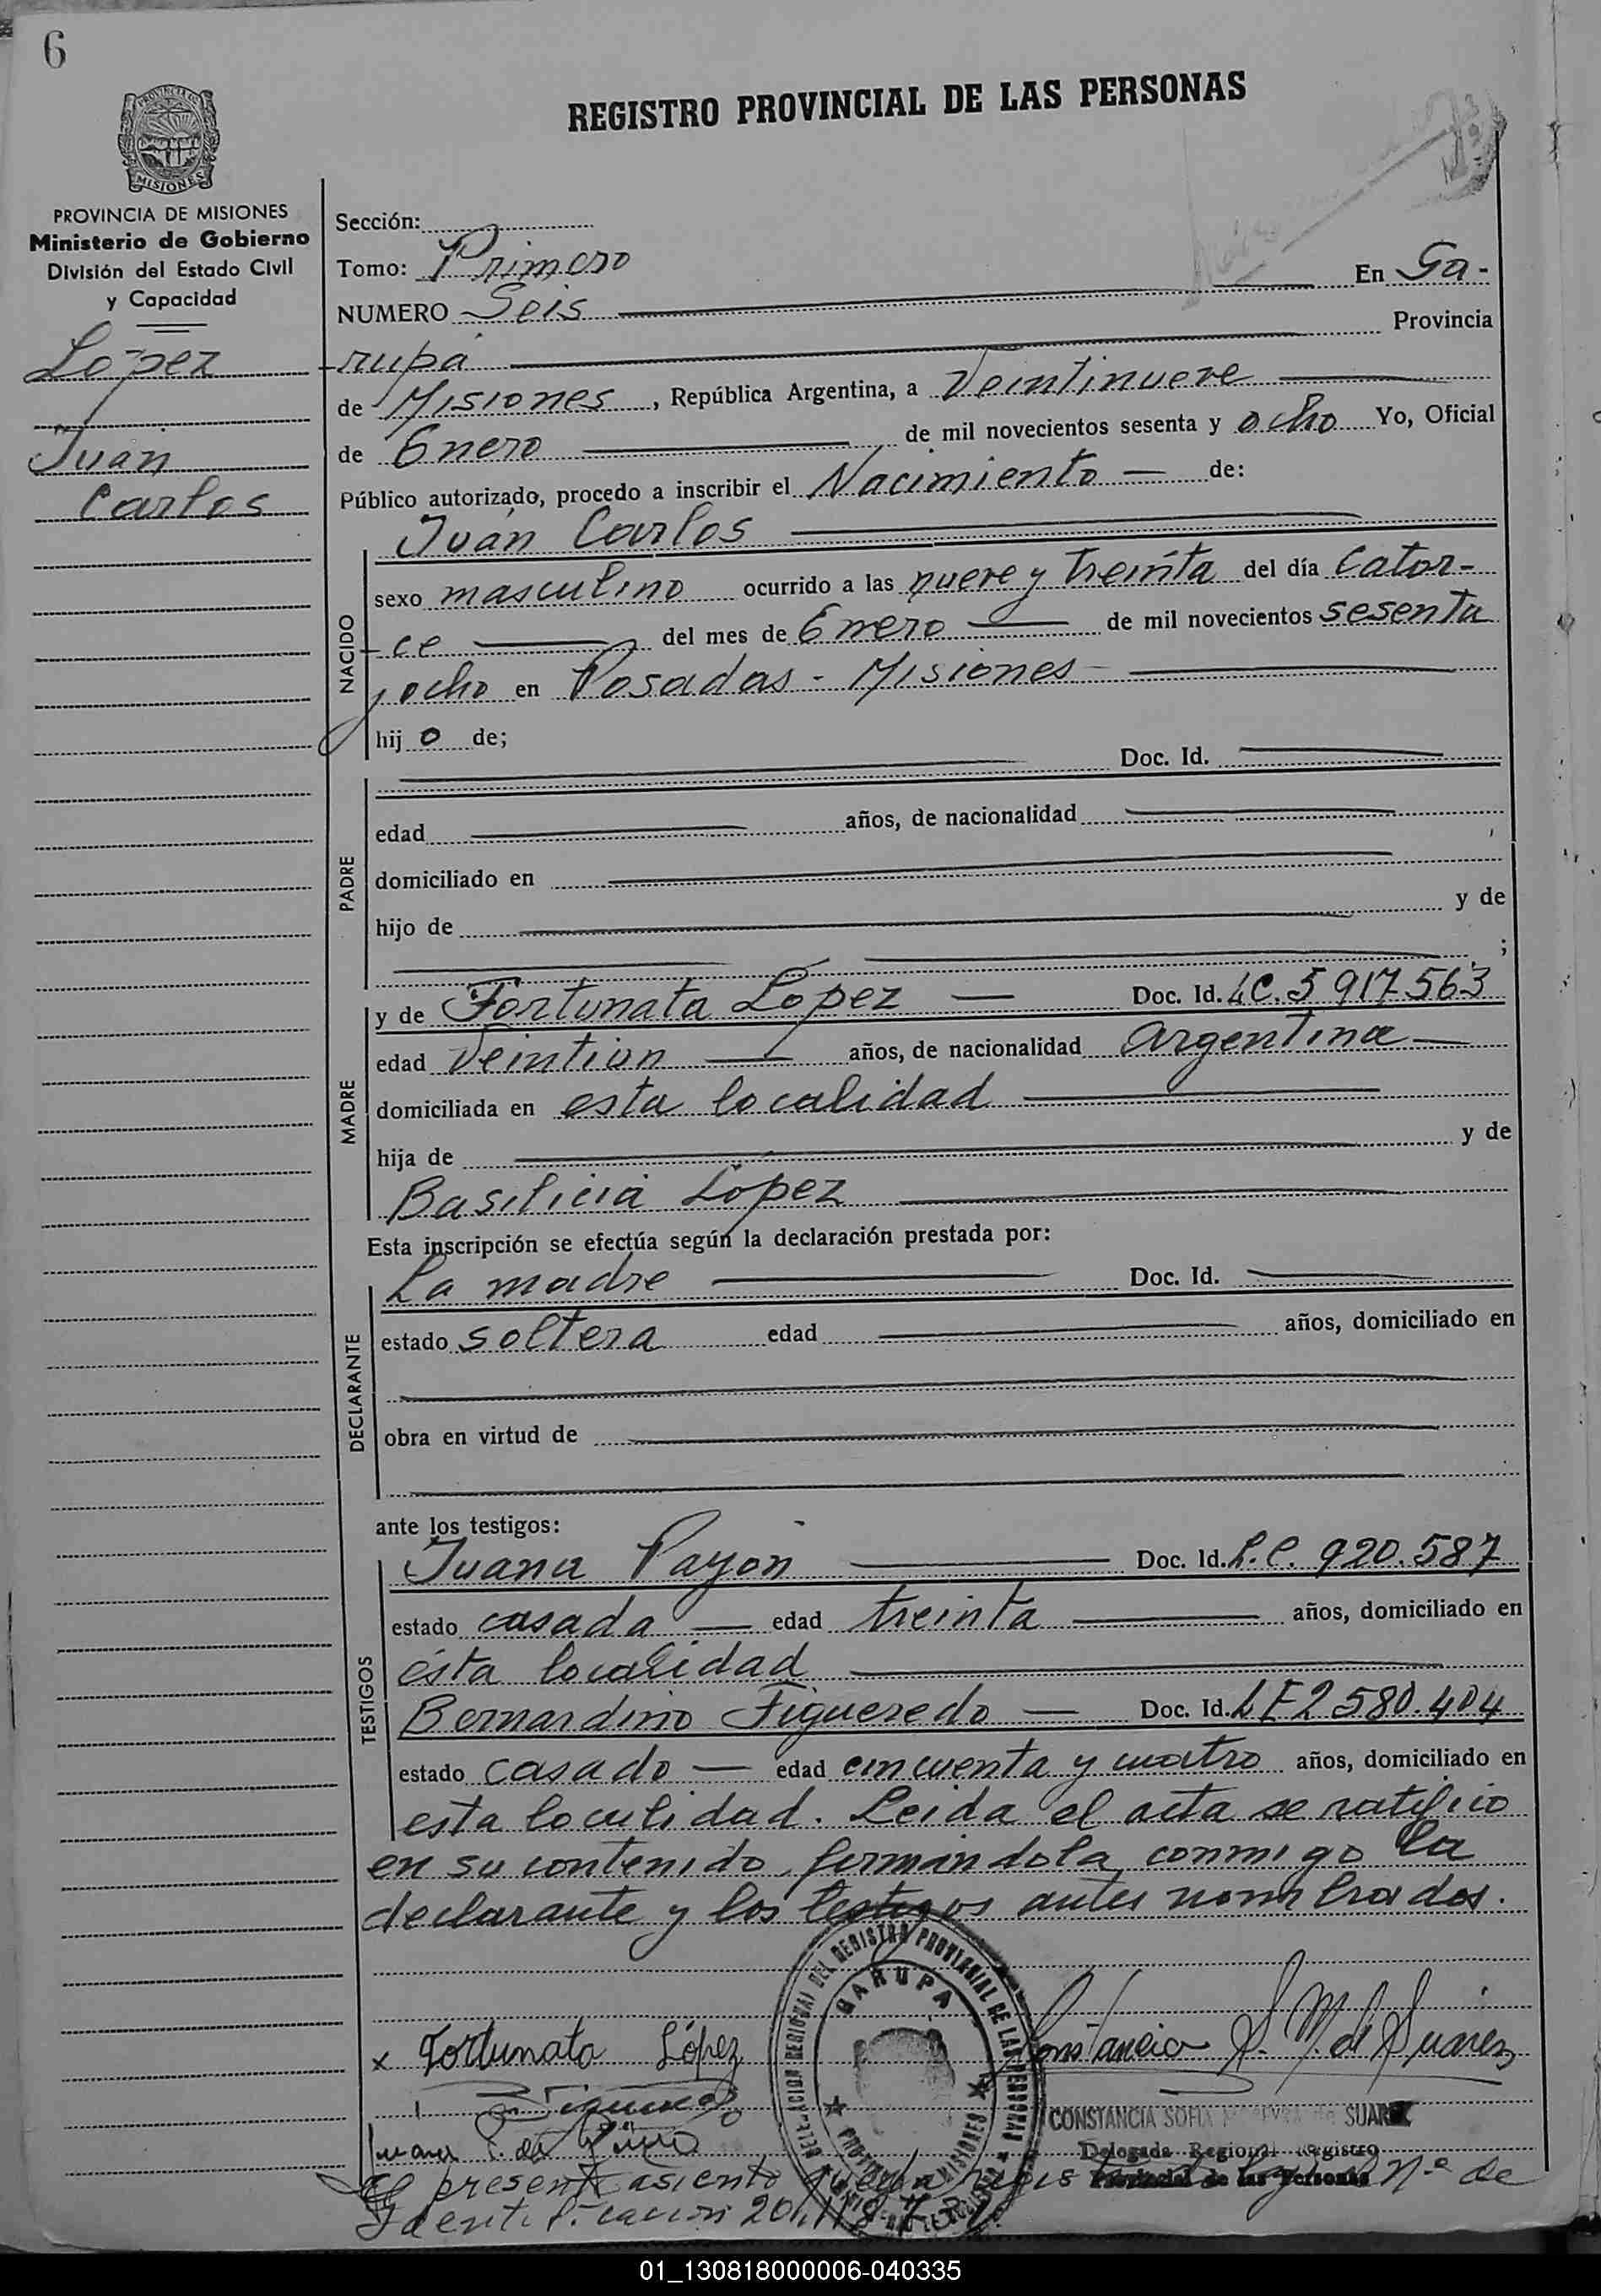 6
REGISTRO PROVINCIAL DE LAS PERSONAS
PROVINCIA DE MISIONES
Ministerio de Gobierno
División del Estado Civil
y Capacidad
López
Juan
Carlos
Sección:
Tomo: Primero
En Ga-
NUMERO Seis
rupá Provincia
de Misiones, República Argentina, a Veintinueve
de Enero de mil novecientos sesenta y ocho Yo, Oficial
Público autorizado, procedo a inscribir el Nacimiento de:
Juan Carlos
NACIDO
sexo masculino ocurrido a las nueve y treinta del día Cator-
ce del mes de Enero de mil novecientos sesenta
y ocho en Posadas - Misiones
hijo de;
PADRE
Doc. Id.
edad años, de nacionalidad
domiciliado en
hijo de y de
;
MADRE
y de Fortunata López Doc. Id. LC. 5 917 563
edad Veintiun años, de nacionalidad argentina
domiciliada en esta localidad
hija de y de
Basilicia López
Esta inscripción se efectúa según la declaración prestada por:
DECLARANTE
La madre Doc. Id.
estado soltera edad años, domiciliado en
obra en virtud de
ante los testigos:
TESTIGOS
Juana Payon Doc. Id. L.C. 920.587
estado casada edad treinta años, domiciliado en
ésta localidad
Bernardino Figueredo Doc. Id. LE 2 580.404
estado casado edad cincuenta y cuatro años, domiciliado en
esta localidad. Leida el acta se ratificó
en su contenido, firmándola, conmigo la
declarante y los testigos antes nombrados.
DELEGACION REGIONAL DEL REGISTRO PROVINCIAL DE LAS PERSONAS
GARUPA
x Fortunata López
Constancia S. M. de Suarez
CONSTANCIA SOFIA de SUAREZ
Juana P. de
Delegada Regional Registro
Provincial de las Personas
El presente asiento queda Nº de
Identificación 20.118.731
01_130818000006-040335